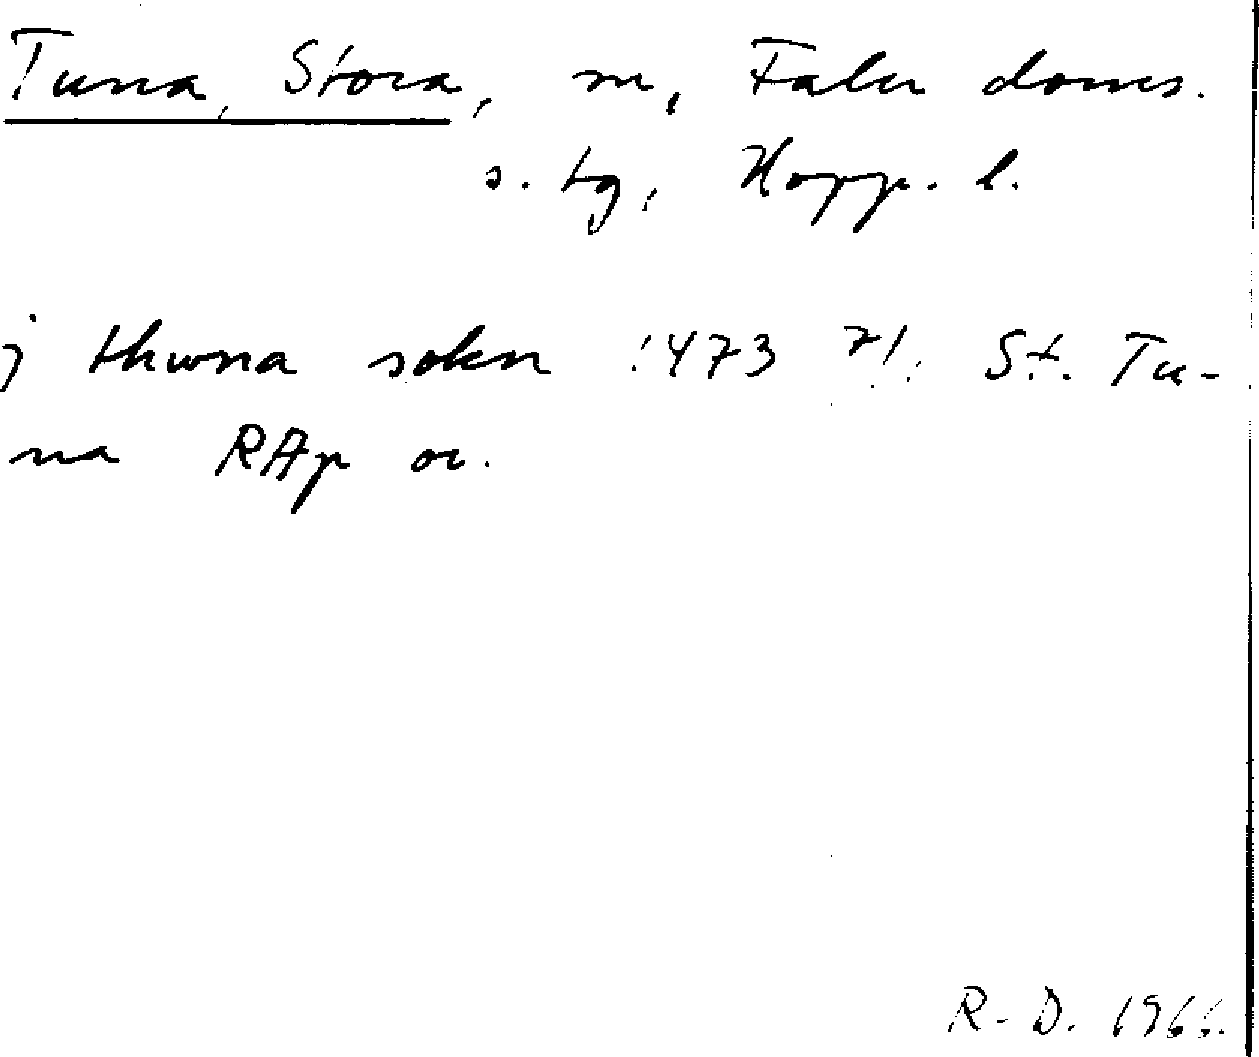 Tuna, Stora, sn, Falu doms.
s. tg, Kopp. l.
j thwna sokn 1473 7/1 St. Tu-
na RAp or.
R-D. 1966.